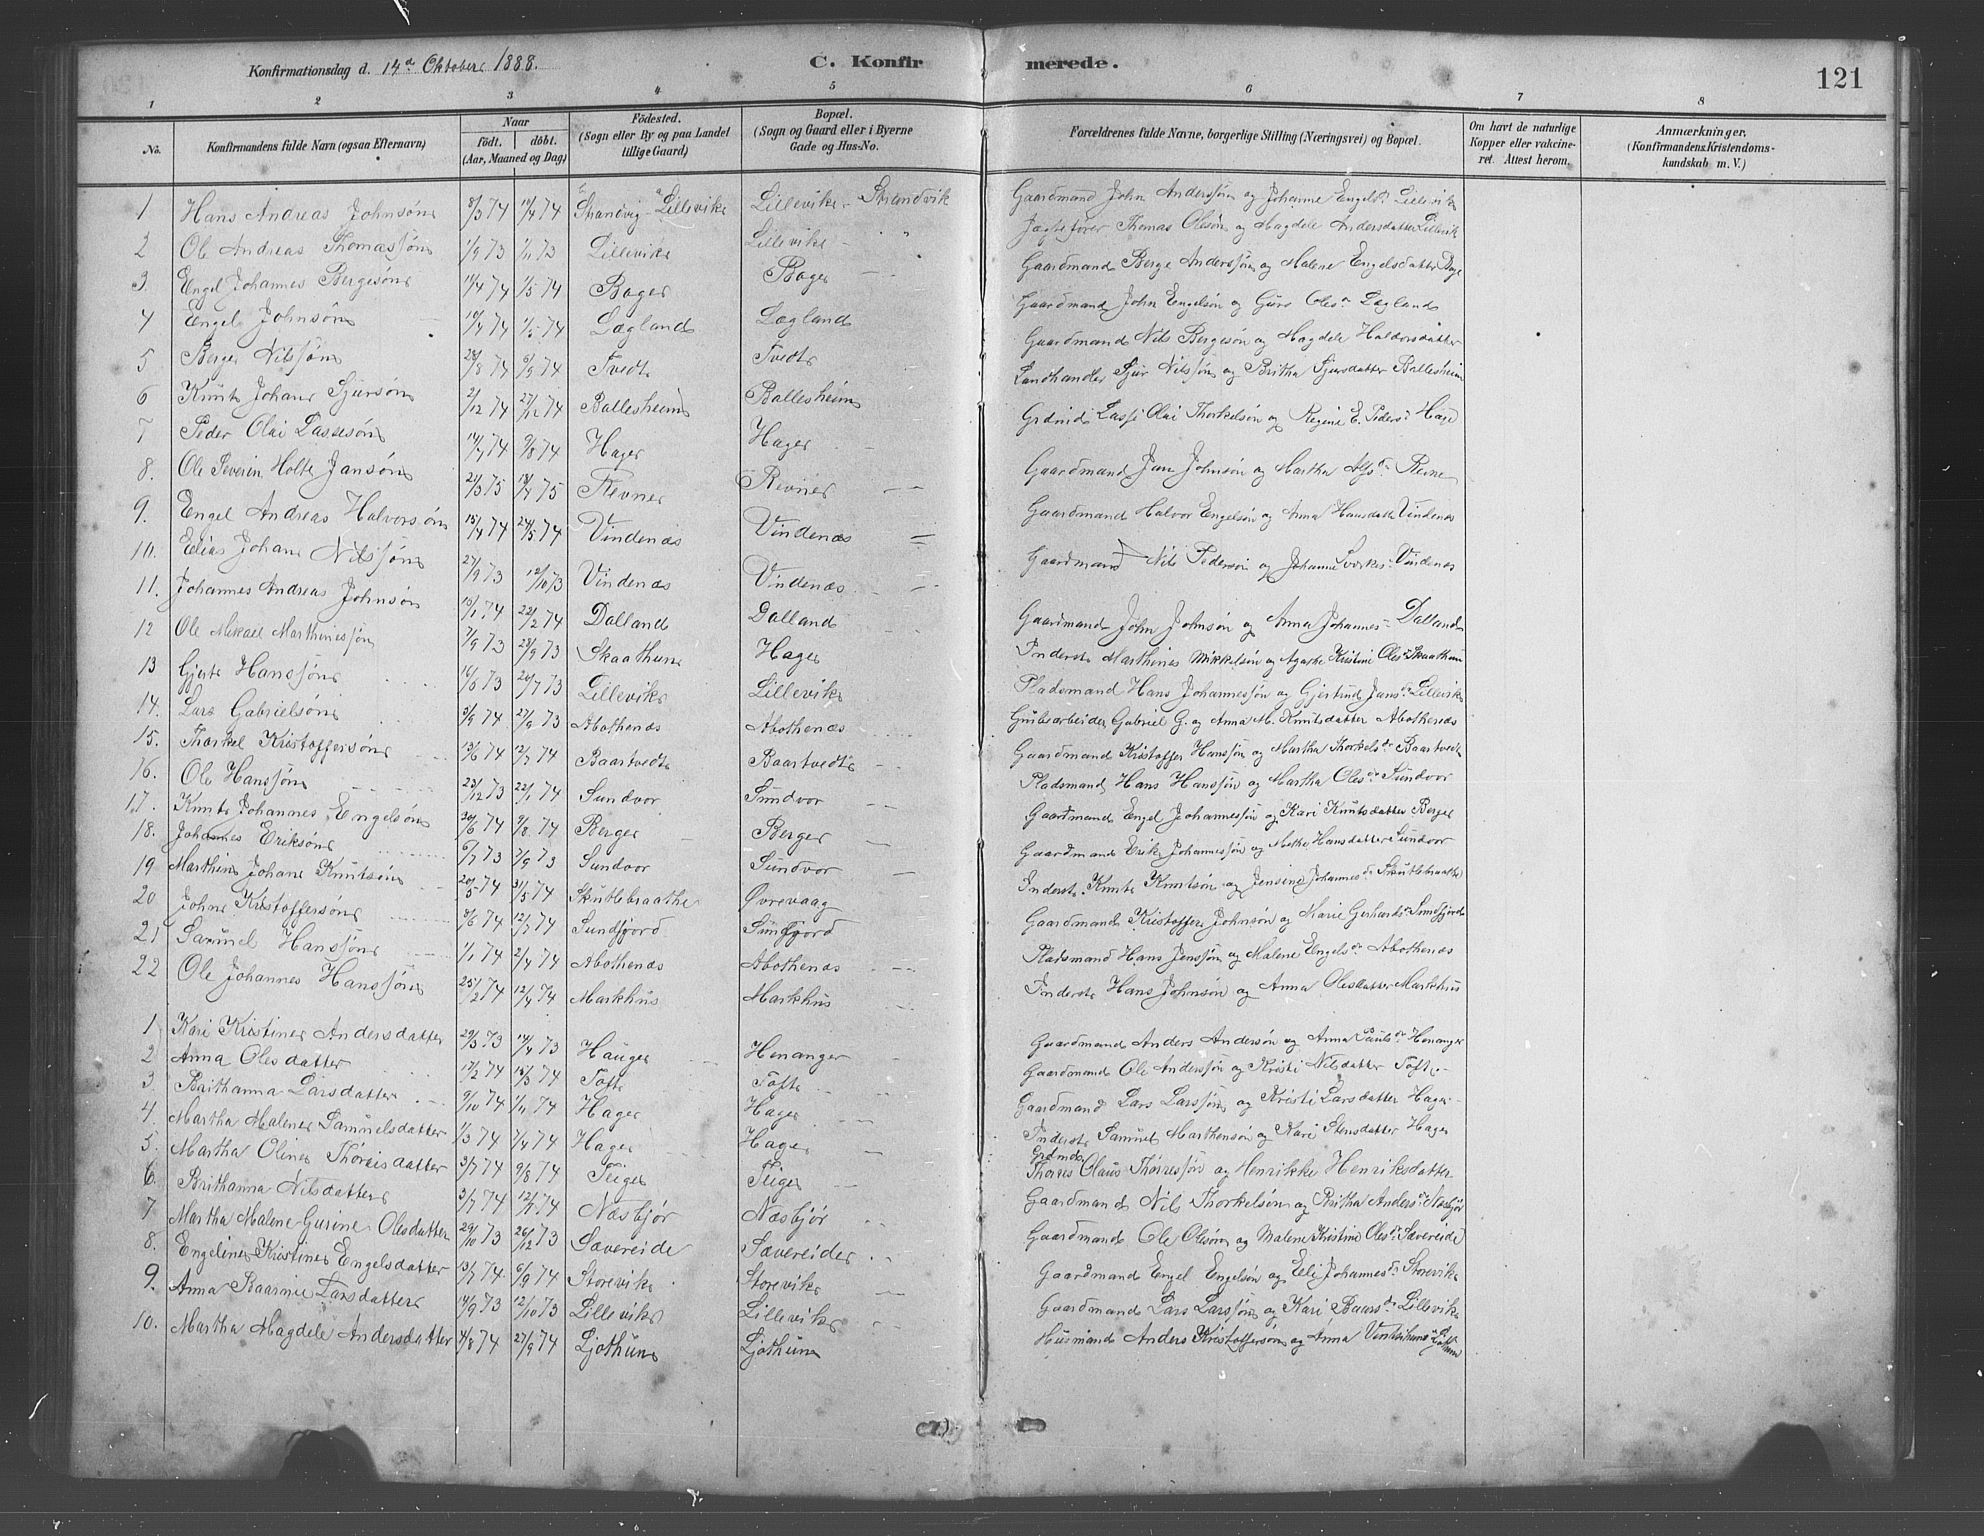 Konfirmationsdag d. 14de Oktober 1888.
C. Konfirmerede.
121
1 2 3 4 5 6 7 8
No.
Konfirmandens fulde Navn (ogsaa Efternavn)
Naar
født. døbt.
(Aar, Maaned og Dag)
Fødested.
(Sogn eller By og paa Landet
tillige Gaard)
Bopæl.
(Sogn og Gaard eller i Byerne
Gade og Hus-No.
Forældrenes fulde Navne, borgerlige Stilling (Næringsvei) og Bopæl.
Om havt de naturlige
Kopper eller vakcine-
ret. Attest herom.
Anmærkninger.
(Konfirmandens Kristendoms-
kundskab m. V.)
1 Hans Andreas Johnsøn 8/3 74 19/4 74 Strandvig - Lillevik Lillevik - Strandvik Gaardmand John Anderssøn og Johanne Engelsd. Lillevik
2 Ole Andreas Thomassøn 1/9 73 1/11 73 Lillevik Lillevik - " Jægtefører Thomas Olesøn og Magdele Andersdatter Lillevik
3 Engel Johannes Bergesøn 14/4 74 1/5 74 Bager Bager Gaardmand Berge Anderssøn og Malene Engelsdatter
4 Engel Johnsøn 1/5 74 Lægland Lægland Gaardmand John Engelsøn og Guro Oles Lægland
5 Berge Nilssøn 28/8 74 6/9 74 Tvedt Tvedt Gaardmand Nils Bergesøn og Magdele Haldorsdatter
6 Knut Johan Sjursøn 21/12 74 27/12 74 Ballesheim Ballesheim Landhandler Sjur Nilssøn og Britha Sjursdatter Ballesheim
7 Peder Olai Lassesøn 14/7 74 9/8 74 Hager Hager Lasse Olai Thorkelsøn og Regine E. Peders Hage
8. Ole Severin Holte Jansøn 21/3 75 18/4 75 Revner Revner Gaardmand Jan Johnsøn og Martha Alfsd. Revne
9. Engel Andreas Halvorsøn 15/4 74 24/5 74 Vindenæs Vindenæs Gaardmand Halvor Engelsøn og Anna Hansdatter Vindenæs
10. Elias Johan Nilssøn 27/9 73 12/10 73 Vindenæs Vindenæs Gaardmand Nils Pedersøn og Johanne Vindenæs
11. Johannes Andreas Johnsøn 15/1 74 22/2 74 Dalland Dalland Gaardmand John Johnsøn og Anna Johannes Dalland
12 Ole Mikael Marthinessøn 7/9 73 28/9 73 Skaathun Hager Inderst Marthines Mikkelsøn og Agathe Kristine Oles Skaathun
13 Gjert Hanssøn 16/6 73 20/7 73 Lillevik Lillevik Pladsmand Hans Johannessøn og Gjertrud Jansd. Lillevik
14. Lars Gabrielsøn 3/9 74 27/9 73 Abothenæs Abothenæs Grubearbeider Gabriel G. og Anna M. Knutsdatter Abothenæs
15. Thorkel Kristoffersøn 13/6 74 12/7 74 Baartvedt Baartvedt Gaardmand Kristoffer Hanssøn og Martha Thorkelsd. Baartvedt
16. Ole Hanssøn 23/12 73 22/1 74 Sundvor Sundvor Pladsmand Hans Hanssøn og Martha Olesd. Sundvor
17. Knut Johannes Engelsøn 30/6 74 9/8 74 Berger Berger Gaardmand Engel Johannessøn og Kari Knutsdatter Berger
18. Johannes Eriksøn 6/7 73 7/9 73 Sundvor Sundvor Gaardmand Erik Johannessøn og Mette Hansdatter Sundvor
19 Marthin Johan Knutsøn 20/5 74 31/5 74 Skutlebraathe Øvrevaag Inderst Knut Knutsøn og Jensine Johannesd. Skutlebraathe
20 John Kristoffersøn 8/6 74 12/7 74 Sundfjord Sundfjord Gaardmand Kristoffer Johnsøn og Marie Gerhards Sundfjord
21 Samuel Hanssøn 1/1 74 2/4 74 Abothenæs Abothenæs Pladsmand Hans Jenssøn og Malene Engelsd. Abothenæs
22 Ole Johannes Hanssøn 25/2 74 12/4 74 Markhus Markhus Inderst Hans Johnsøn og Anna Olesdatter Markhus
1 Kari Kristine Andersdatter 29/3 73 14/4 73 Hauger Henanger Gaardmand Anders Andersøn og Anna Paulsd. Henanger
2 Anna Olesdatter 17/2 74 15/3 74 Tofte Tofte Gaardmand Ole Anderssøn og Kristi Nilsdatter Tofte
3. Brithanna Larsdatter 9/10 74 1/11 74 Hager Hager Gaardmand Lars Larssøn og Kristi Larsdatter Hager
4. Martha Malene Samuelsdatter 1/3 74 7/4 74 Hager Hager Inderst Samuel Marthensøn og Kari Stensdatter Hager
5. Martha Oline Thorresdatter 3/7 74 9/8 74 Teiger Teiger Grdmd. Thorres Olaus Thorressøn og Henrikke Henriksdatter
6. Brithanna Nilsdatter 3/7 74 12/7 74 Næsbjør Næsbjør Gaardmand Nils Thorkelsøn og Britha Andersd. Næsbjør
7 Martha Malene Gurine Olesdatter 29/10 73 26/12 73 Sævereide Sævereider Gaardmand Ole Olesøn og Malene Kristine Olesd. Sævereide
8. Engeline Kristine Engelsdatter 13/7 74 6/9 74 Storevik Storevik Gaardmand Engel Engelsøn og Eli Johannesd. Storevik
9. Anna Baarnie Larsdatter 14/9 73 12/10 73 Lillevik Lillevik Gaardmand Lars Larssøn og Kari Baarsd. Lillevik
10. Martha Magdele Andersdatter 4/8 74 27/9 74 Ljothun Ljothun Husmand Anders Kristoffersøn og Anna Ljothun